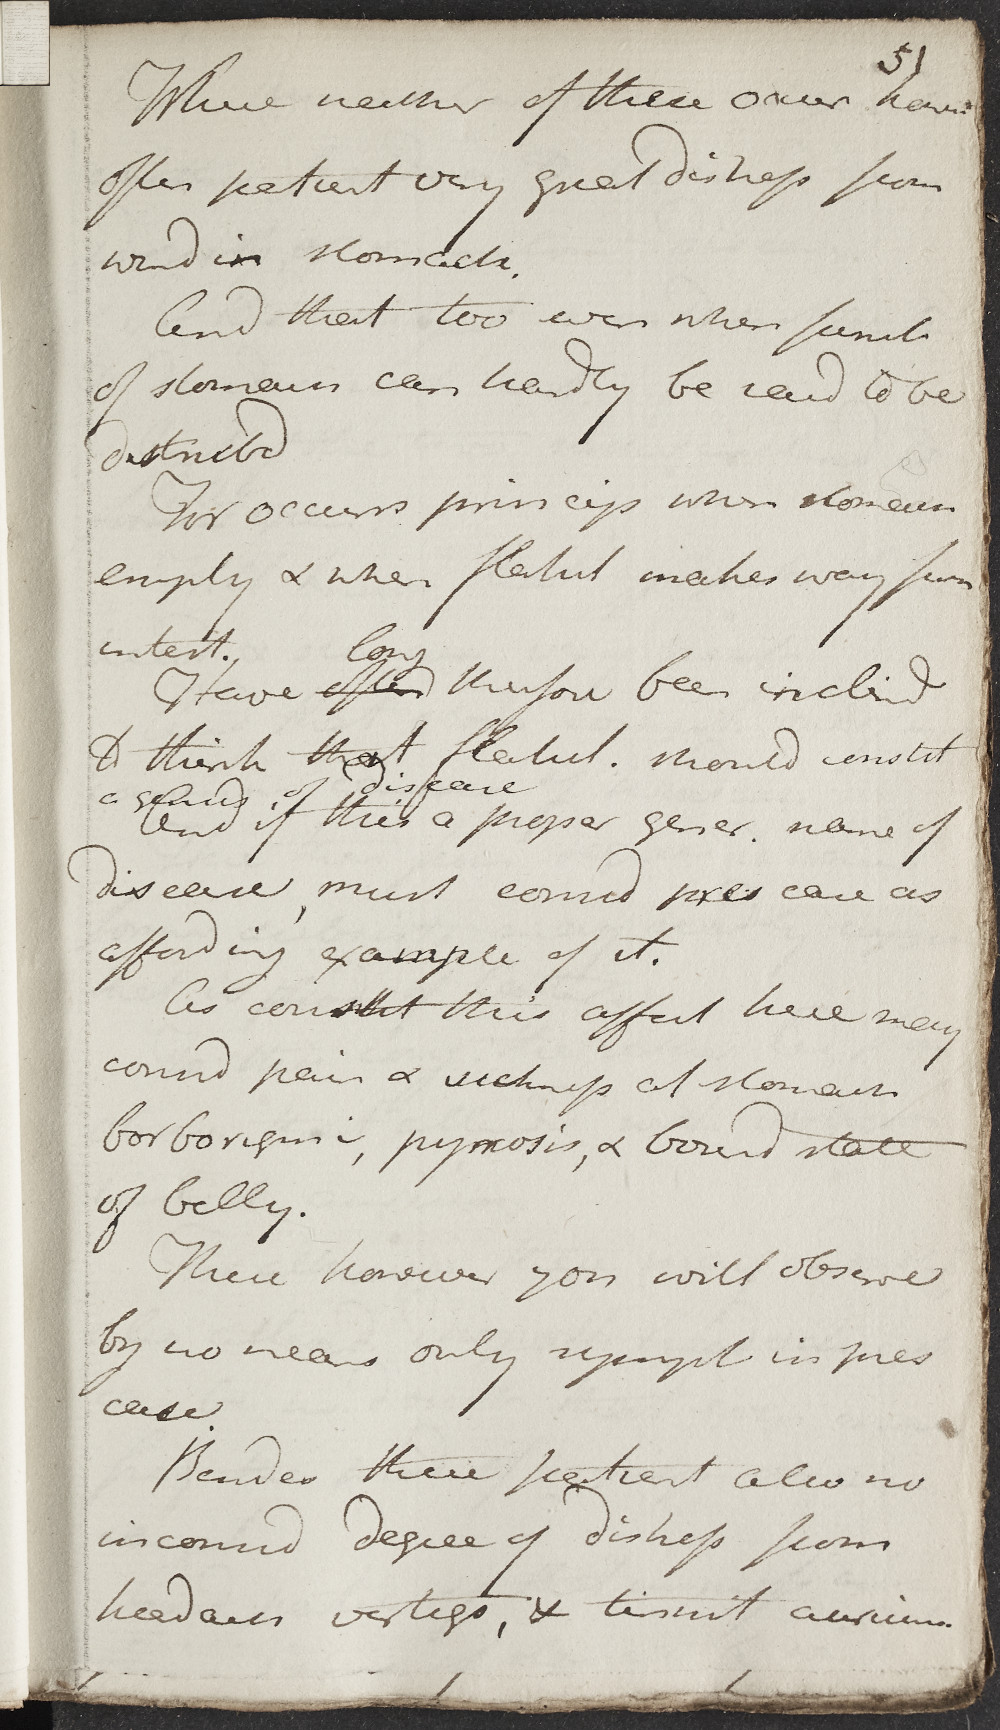 51
Where neither of these occur have
often patient very great distress from
wind in stomach.
And that too even when funct
of stomach can hardly be said to be
disturbd
For occurs princip when stomach
empty & when flatul makes way from
intest.
long
Have often therefore been inclind
to think that flatul. should constit
a genus of disease
And if this a proper gener. name of
disease, must consid pres case as
affording example of it.
As constit this affect here may
consid pain & sickness at stomach
borborigmi, pyrosis, & bound state
of belly.
These however you will observe
by no means only sympt in pres
case.
Besides these patient also no
inconsid degree of distress from
headach vertigo, & tinnit aurium